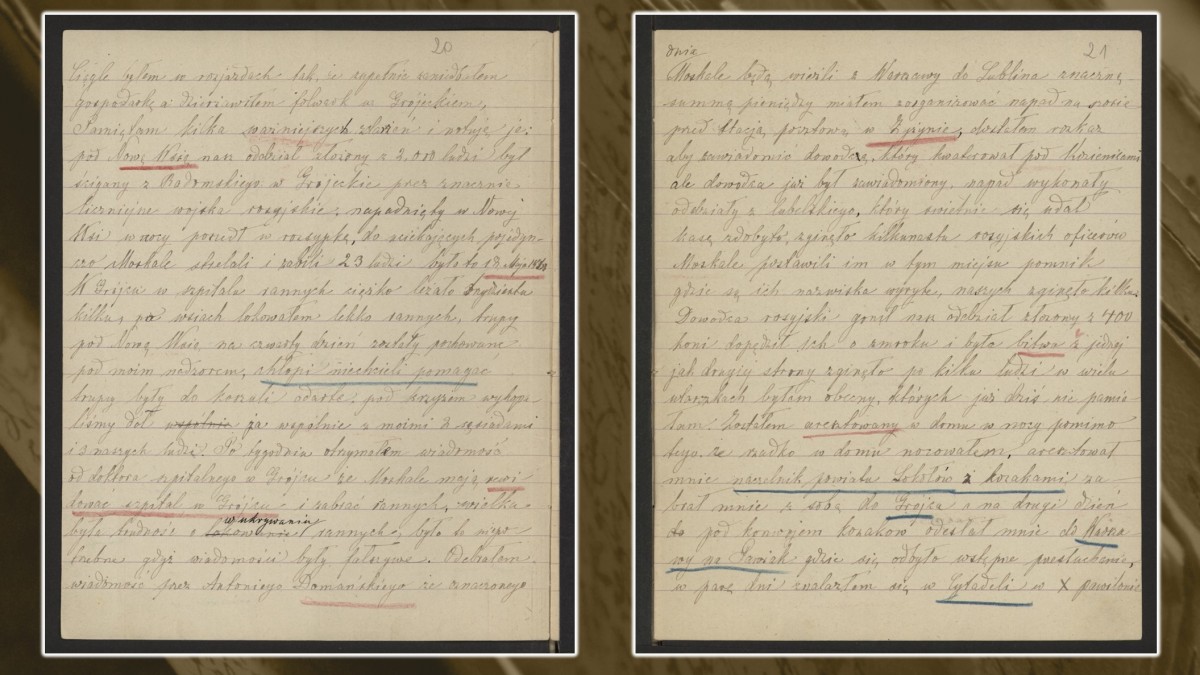 20
Ciągle byłem w rozjazdach tak, że zupełnie zaniedbałem
gospodarkę a dzierżawiłem folwark w Grójeckiem,
Pamiętam kilka ważniejszych zdarzeń i notuję je:
pod Nową Wsią nasz oddział złożony z 2.000 ludzi był
ścigany z Radomskiego w Grójeckie przez znacznie
liczniejsze wojska rosyjskie; napadnięty w Nowej
Wsi w nocy poszedł w rozsypkę, do uciekających pojedyn-
czo Moskale strzelali i zabili 23 ludzi było to
W Grójcu w szpitalu rannych ciężko leżało trzydziestu
kilku, po wsiach lokowałem lekko rannych, trupy
pod Nową Wsią na czwarty dzień zostały pochowane
pod moim nadzorem, chłopi niechcieli pomagać
trupy były do koszuli odarte; pod krzyżem wykopa-
liśmy dół ja wspólnie z moimi 2 sąsiadami
i z naszych ludzi. Po tygodniu otrzymałem wiadomość
od doktora szpitalnego w Grójcu że Moskale mają rewi
dować szpital w Grójcu i zabrać rannych, wielka
była trudność w ukrywaniu rannych, było to niepo-
trzebne gdyż wiadomości były fałszywe. Odebrałem
wiadomość przez Antoniego Domańskiego że oznaczonego
21
dnia
Moskale będą wieźli z Warszawy do Lublina znaczną
summę pieniędzy miałem zorganizować napad na szosie
przed stacją pocztową w Żyrzynie; dostałem rozkaz
aby zawiadomić dowódcę, który kwaterował pod Kozienicami
ale dowódca już był zawiadomiony, napad wykonały
oddziały z Lubelskiego, który świetnie się udał
kasę zdobyto, zginęło kilkunastu rosyjskich oficerów
Moskale postawili im w tym miejscu pomnik
gdzie są ich nazwiska wyryte, naszych zginęło kilku.
Dowódca rosyjski gonił nasz oddział złożony z 400
koni dopędził ich o zmroku i była bitwa z jednej
jak drugiej strony zginęło po kilku ludzi w wielu
utarczkach byłem obecny, których już dziś nie pamię-
tam. Zostałem aresztowany w domu w nocy pomimo
tego, że rzadko w domu nocowałem, aresztował
mnie naczelnik powiatu Sokołów z kozakami za-
brał mnie z sobą do Grójca a na drugi dzień
pod konwojem kozaków odesłał mnie do Warsza
wy na Pawiak gdzie się odbyło wstępne przesłuchanie,
w parę dni znalazłem się w Cytadeli w X pawilonie